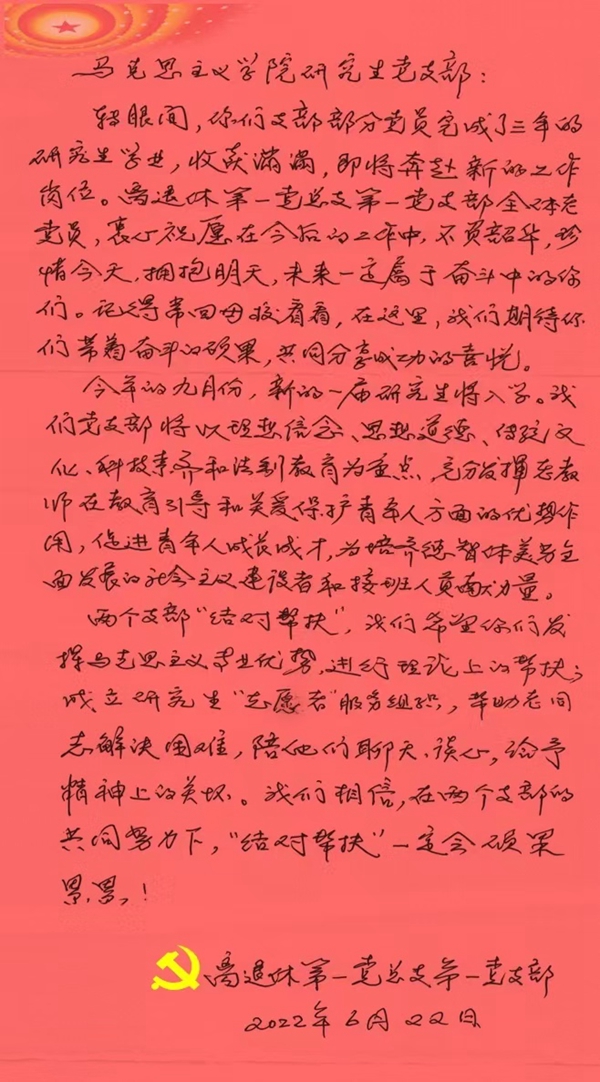 马克思主义学院研究生党支部：
转眼间，你们支部部分党员完成了三年的
研究生学业，收获满满，即将奔赴新的工作
岗位。离退休第一党总支第一党支部全体老
党员，衷心祝愿在今后的工作中，不负韶华，珍
惜今天，拥抱明天，未来一定属于奋斗中的你
们。记得常回母校看看，在这里，我们期待你
们带着奋斗的硕果，共同分享成功的喜悦。
今年的九月份，新的一届研究生将入学。我
们党支部将以理想信念、思想道德、传统文
化、科技素养和法制教育为重点，充分发挥老教
师在教育引导和关爱保护青年人方面的优势作
用，促进青年人成长成才，为培养德智体美劳全
面发展的社会主义建设者和接班人贡献力量。
两个支部“结对帮扶”，我们希望你们发
挥马克思主义专业优势，进行理论上的帮扶；
成立研究生“志愿者”服务组织，帮助老同
志解决困难，陪他们聊天、谈心，给予
精神上的关怀。我们相信，在两个支部的
共同努力下，“结对帮扶”一定会硕果
累累！
离退休第一党总支第一党支部
2022年6月22日